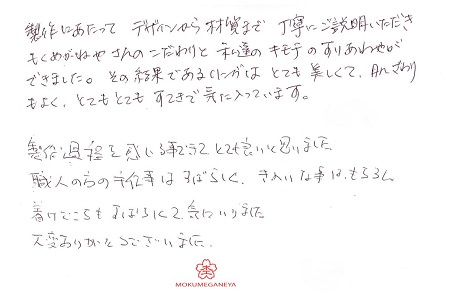 製作にあたって デザインから材質まで 丁寧にご説明いただき
もくめがねやさんのこだわりと私達のキモチのすりあわせが
できました。その結果であるリングは とても美しくて、肌ざわり
もよく、とてもとても すてきで気に入っています。
製作過程を感じる事ができて とても良いと思いました
職人の方の手仕事はすばらしく、きれいな事はもちろん
着けごこちもすばらしくて気に入りました
大変ありがとうございました。
MOKUMEGANEYA